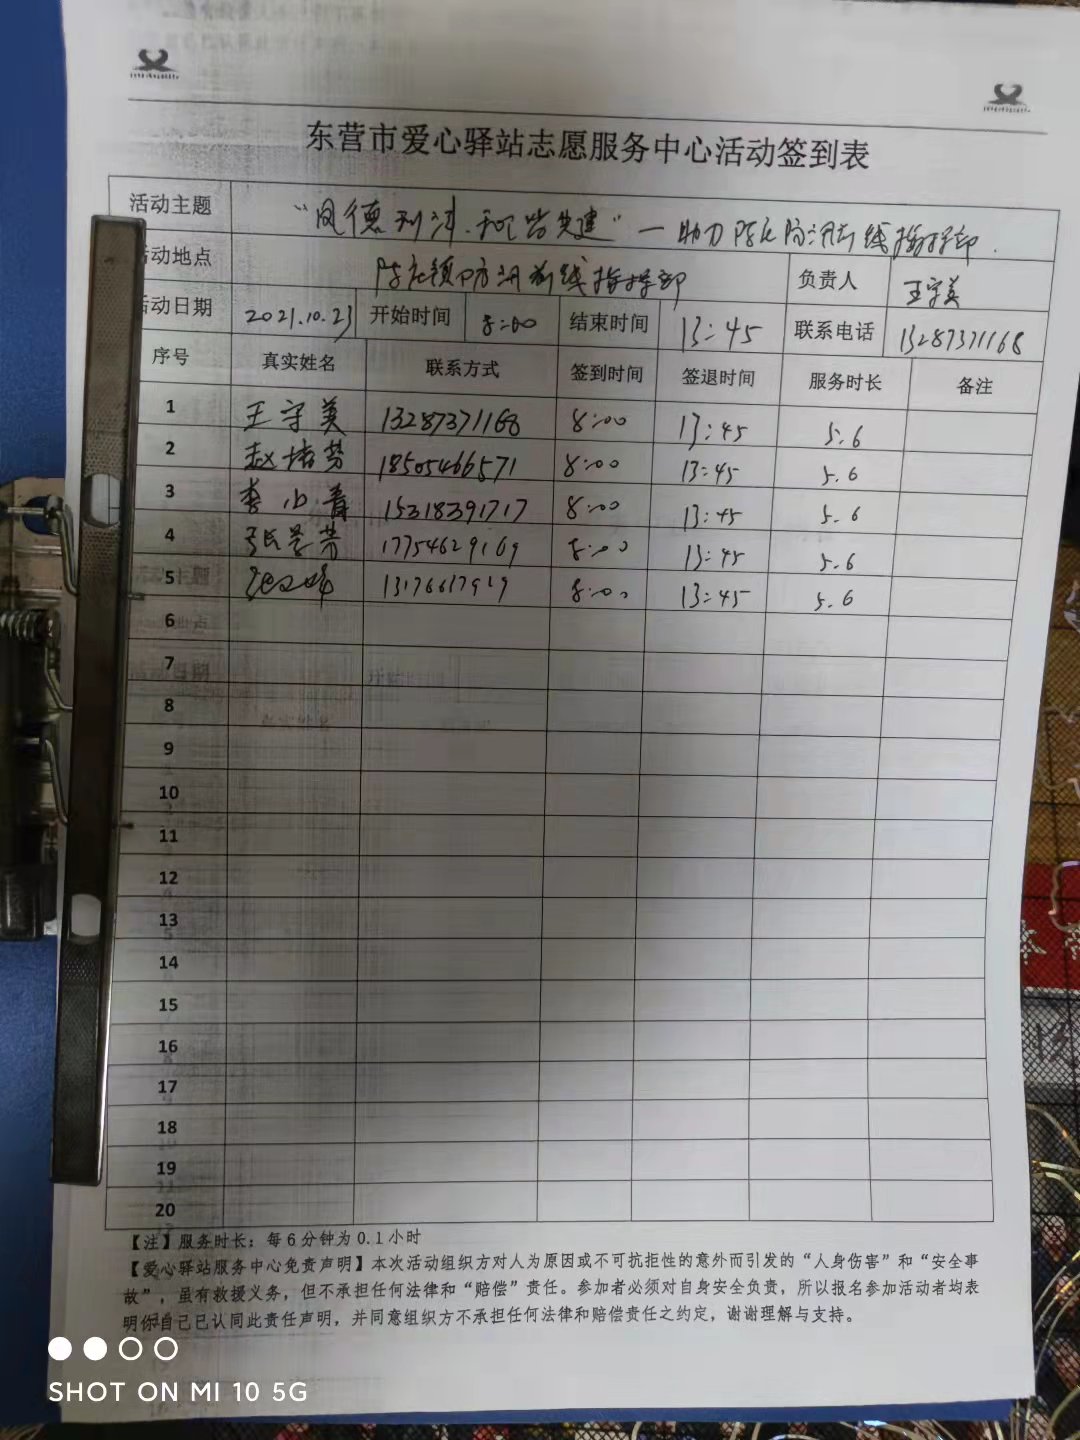 东营市爱心驿站志愿服务中心活动签到表
活动主题 “凤德利津·和谐共建”一助力陈庄防汛前线指挥部.
活动地点 陈庄镇防汛前线指挥部 负责人 王守美
活动日期 2021.10.23 开始时间 8:00 结束时间 13:45 联系电话 13287371168
序号 真实姓名 联系方式 签到时间 签退时间 服务时长 备注
1 王守美 13287371168 8:00 13:45 5.6
2 赵 芳 18505466571 8:00 13:45 5.6
3 李小青 15318391717 8:00 13:45 5.6
4 张景芳 17754629169 8:00 13:45 5.6
5 13176617919 8:00 13:45 5.6
6
7
8
9
10
11
12
13
14
15
16
17
18
19
20
【注】服务时长：每6分钟为0.1小时
【爱心驿站服务中心免责声明】本次活动组织方对人为原因或不可抗拒性的意外而引发的“人身伤害”和“安全事
故”，虽有救援义务，但不承担任何法律和“赔偿”责任。参加者必须对自身安全负责，所以报名参加活动者均表
明你自己已认同此责任声明，并同意组织方不承担任何法律和赔偿责任之约定，谢谢理解与支持。
SHOT ON MI 10 5G